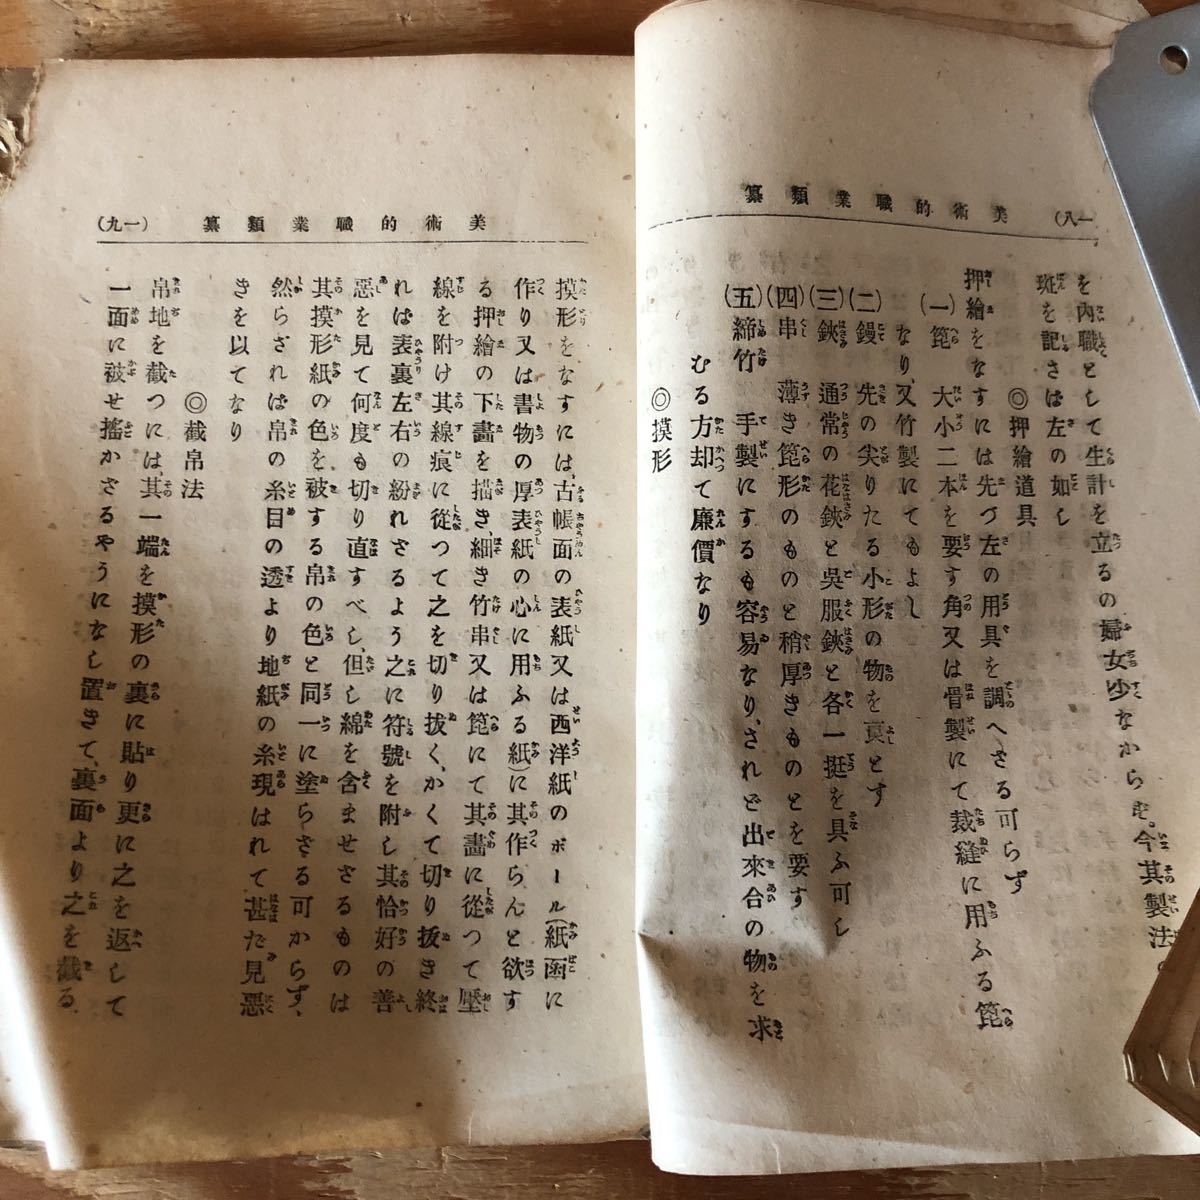 (一八) 美術的職業類纂
を內職として生計を立るの婦女尠なからず。今其製法の一
斑を記さば左の如し
◎押繪道具
押繪をなすには先づ左の用具を調へざる可らず
(一)箆 大小二本を要す角又は骨製にて裁縫に用ふる箆
なり、又竹製にてもよし
(二)鏝 先の尖りたる小形の物を良とす
(三)鋏 通常の花鋏と吳服鋏と各一挺を具ふ可し
(四)串 薄き箆形のものと稍厚きものとを要す
(五)締竹 手製にするも容易なり、されど出來合の物を求
むる方却て廉價なり
◎摸形
美術的職業類纂 (一九)
摸形をなすには、古帳面の表紙又は西洋紙のボール(紙函に
作り又は書物の厚表紙の心に用ふる紙)に其作らんと欲す
る押繪の下畫を描き細き竹串又は箆にて其畫に從つて壓
線を附け其線痕に從つて之を切り拔く、かくて切り拔き終
れば表裏左右の紛れざるよう之に符號を附し其恰好の善
惡を見て何度も切り直すべし、但し綿を含ませざるものは
其摸形紙の色を被する帛の色と同一に塗らざる可からず、
然らざれば帛の糸目の透より地紙の糸現はれて甚だ見惡
きを以てなり
◎截帛法
帛地を截つには、其一端を摸形の裏に貼り更に之を返して
一面に被せ搖かざるやうになし置きて、裏面より之を截る、